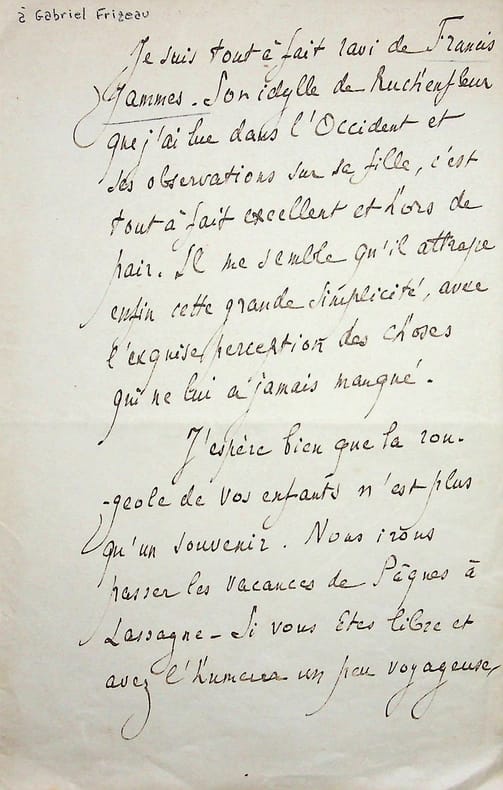 à Gabriel Frizeau
Je suis tout à fait ravi de Francis
Jammes. Son idylle de Ruchenfleur
que j'ai lue dans l'Occident et
ses observations sur sa fille, c'est
tout à fait excellent et hors de
pair. Il me semble qu'il attrape
enfin cette grande simplicité, avec
l'exquise perception des choses
qui ne lui a jamais manqué.
J'espère bien que la rou-
-geole de vos enfants n'est plus
qu'un souvenir. Nous irons
passer les vacances de Pâques à
Lassagne - Si vous êtes libre et
avez l'humeur un peu voyageuse,